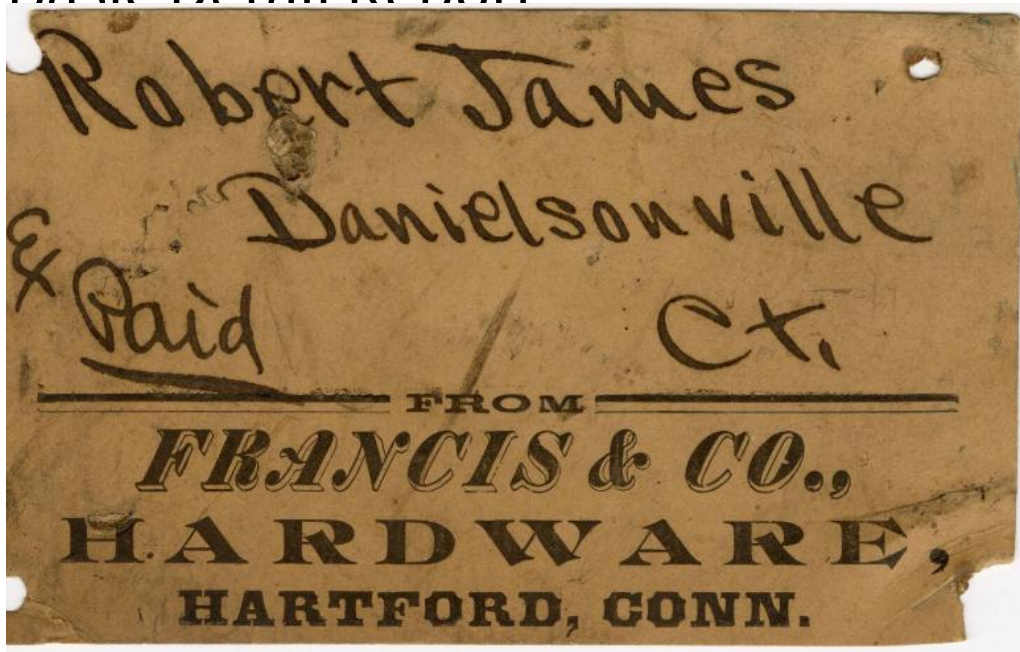 Robert James
Danielsonville
Ex
Paid Ct.
FROM
FRANCIS & CO.,
HARDWARE,
HARTFORD, CONN.